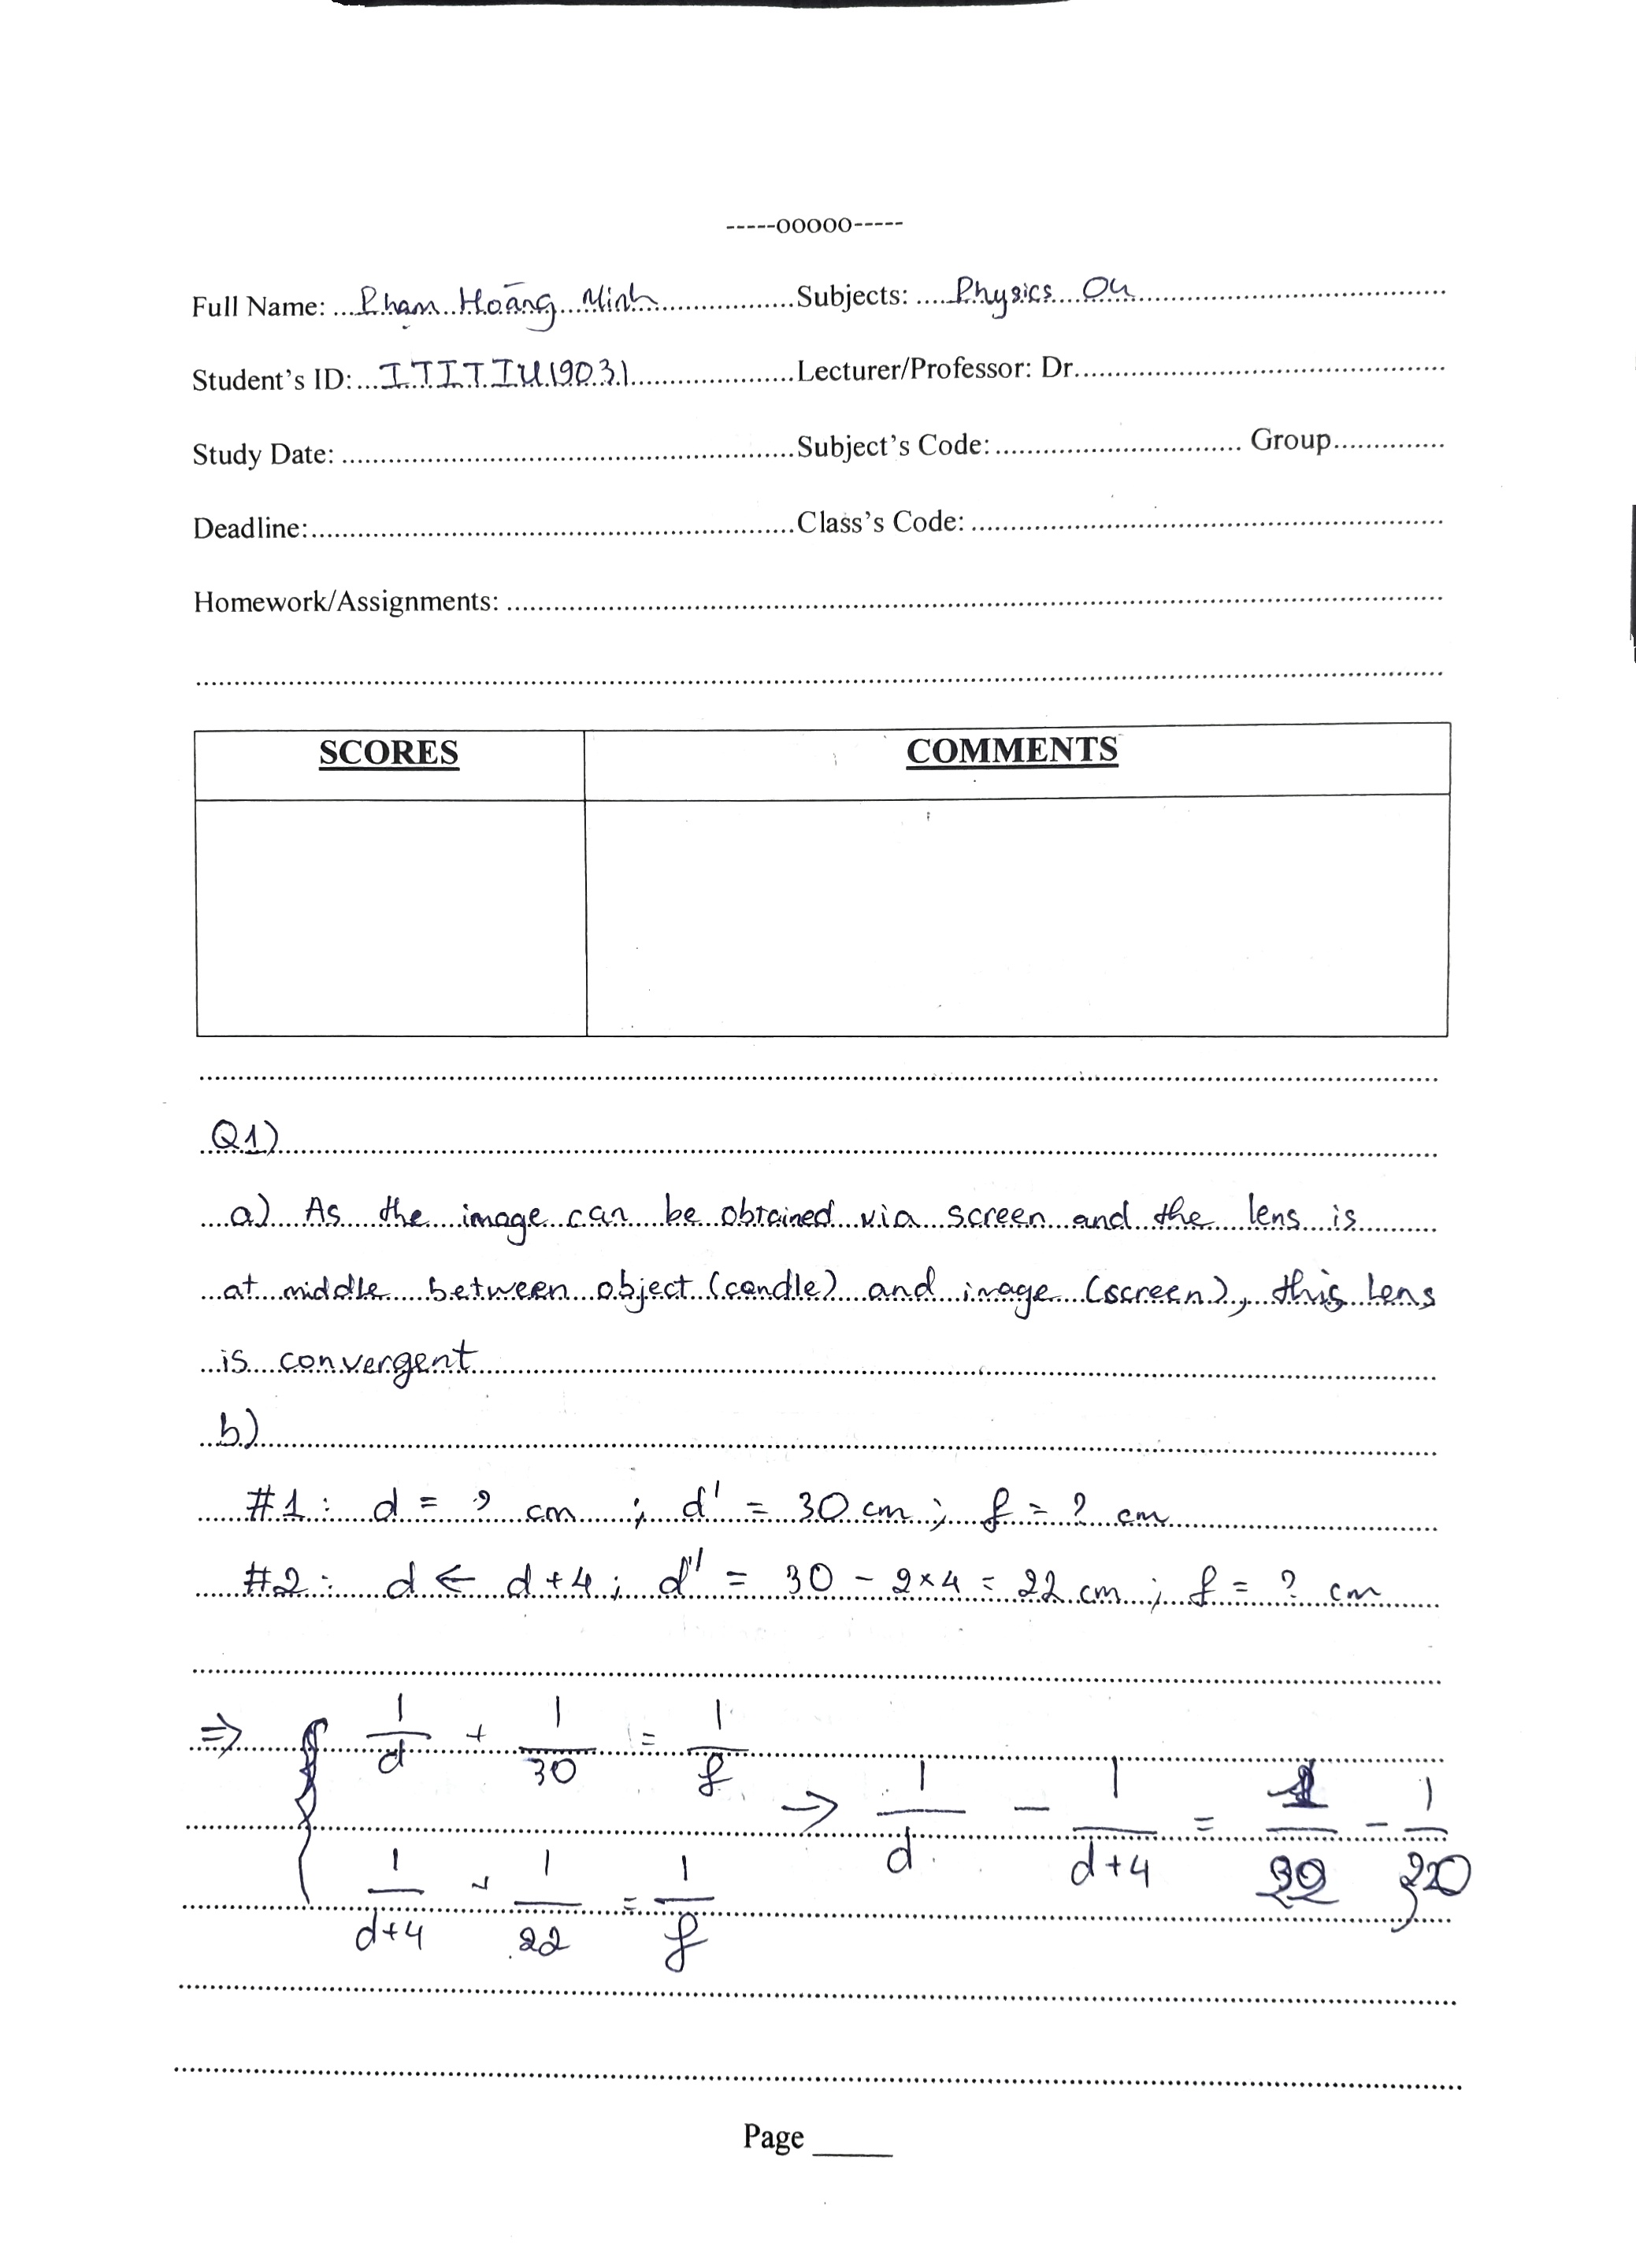 -----ooooo-----
Full Name: ... Phạm Hoàng Minh ............ Subjects: ..... Physics 04 ............
Student's ID: ... ITITIU19031 ............ Lecturer/Professor: Dr. ............
Study Date: ............ Subject's Code: ............ Group ............
Deadline: ............ Class's Code: ............
Homework/Assignments: ............
SCORES COMMENTS
Q1)
a) As the image can be obtained via screen and the lens is
at middle between object (candle) and image (screen), this lens
is convergent
b)
#1 : d = ? cm ; d' = 30 cm ; f = ? cm
#2 : d ← d + 4 ; d'' = 30 - 2 × 4 = 22 cm ; f = ? cm
⇒ { 1/d + 1/30 = 1/f
→ 1/d - 1/(d+4) = 1/22 -
1/(d+4) + 1/22 = 1/f
Page _____